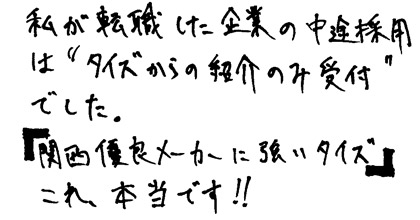 私が転職した企業の中途採用
は“タイズからの紹介のみ受付”
でした。
『関西優良メーカーに強いタイズ』
これ、本当です!!